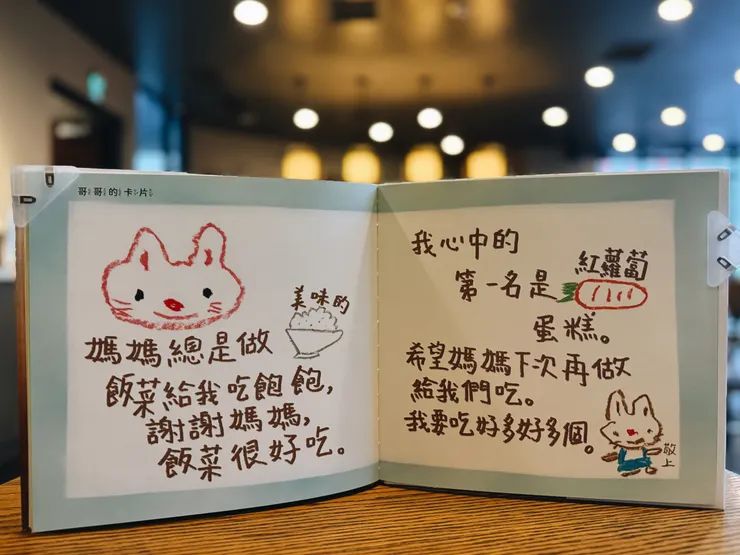 哥哥的卡片
美味的
媽媽總是做
飯菜給我吃飽飽，
謝謝媽媽，
飯菜很好吃。
我心中的
第一名是
紅蘿蔔
蛋糕。
希望媽媽下次再做
給我們吃。
我要吃好多好多個。
敬上